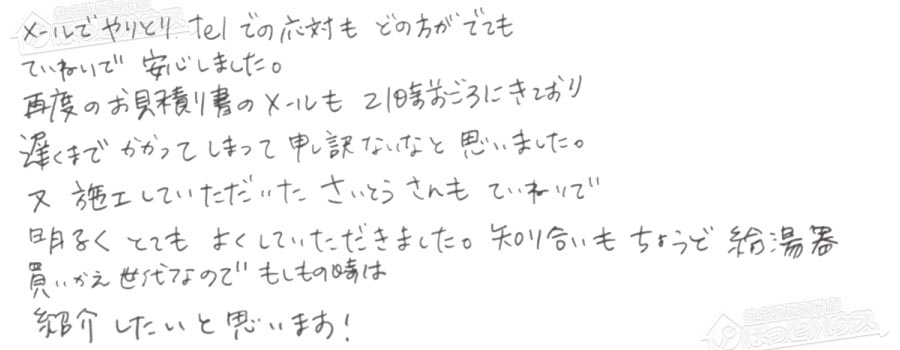 メールでやりとり、telでの応対も どの方がでても
ていねいで 安心しました。
再度のお見積り書のメールも 21時半ごろにきており
遅くまで かかってしまって 申し訳ないなと 思いました。
又 施工していただいた さいとうさんも ていねいで
明るく とても よくしていただきました。知り合いも ちょうど 給湯器
買いかえ世代なので もしもの時は
紹介 したいと 思います!
ほっとハウス